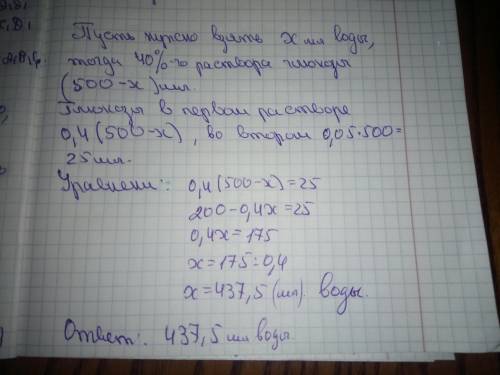 Пусть нужно взять x мл воды,
тогда 40%-го раствора глюкозы
(500-x) мл.
Глюкозы в первом растворе
0,4(500-x), во втором 0,05·500=
25 мл.
Уравнени: 0,4(500-x)=25
200-0,4x=25
0,4x=175
x=175:0,4
x=437,5 (мл) воды.
Ответ: 437,5 мл воды.